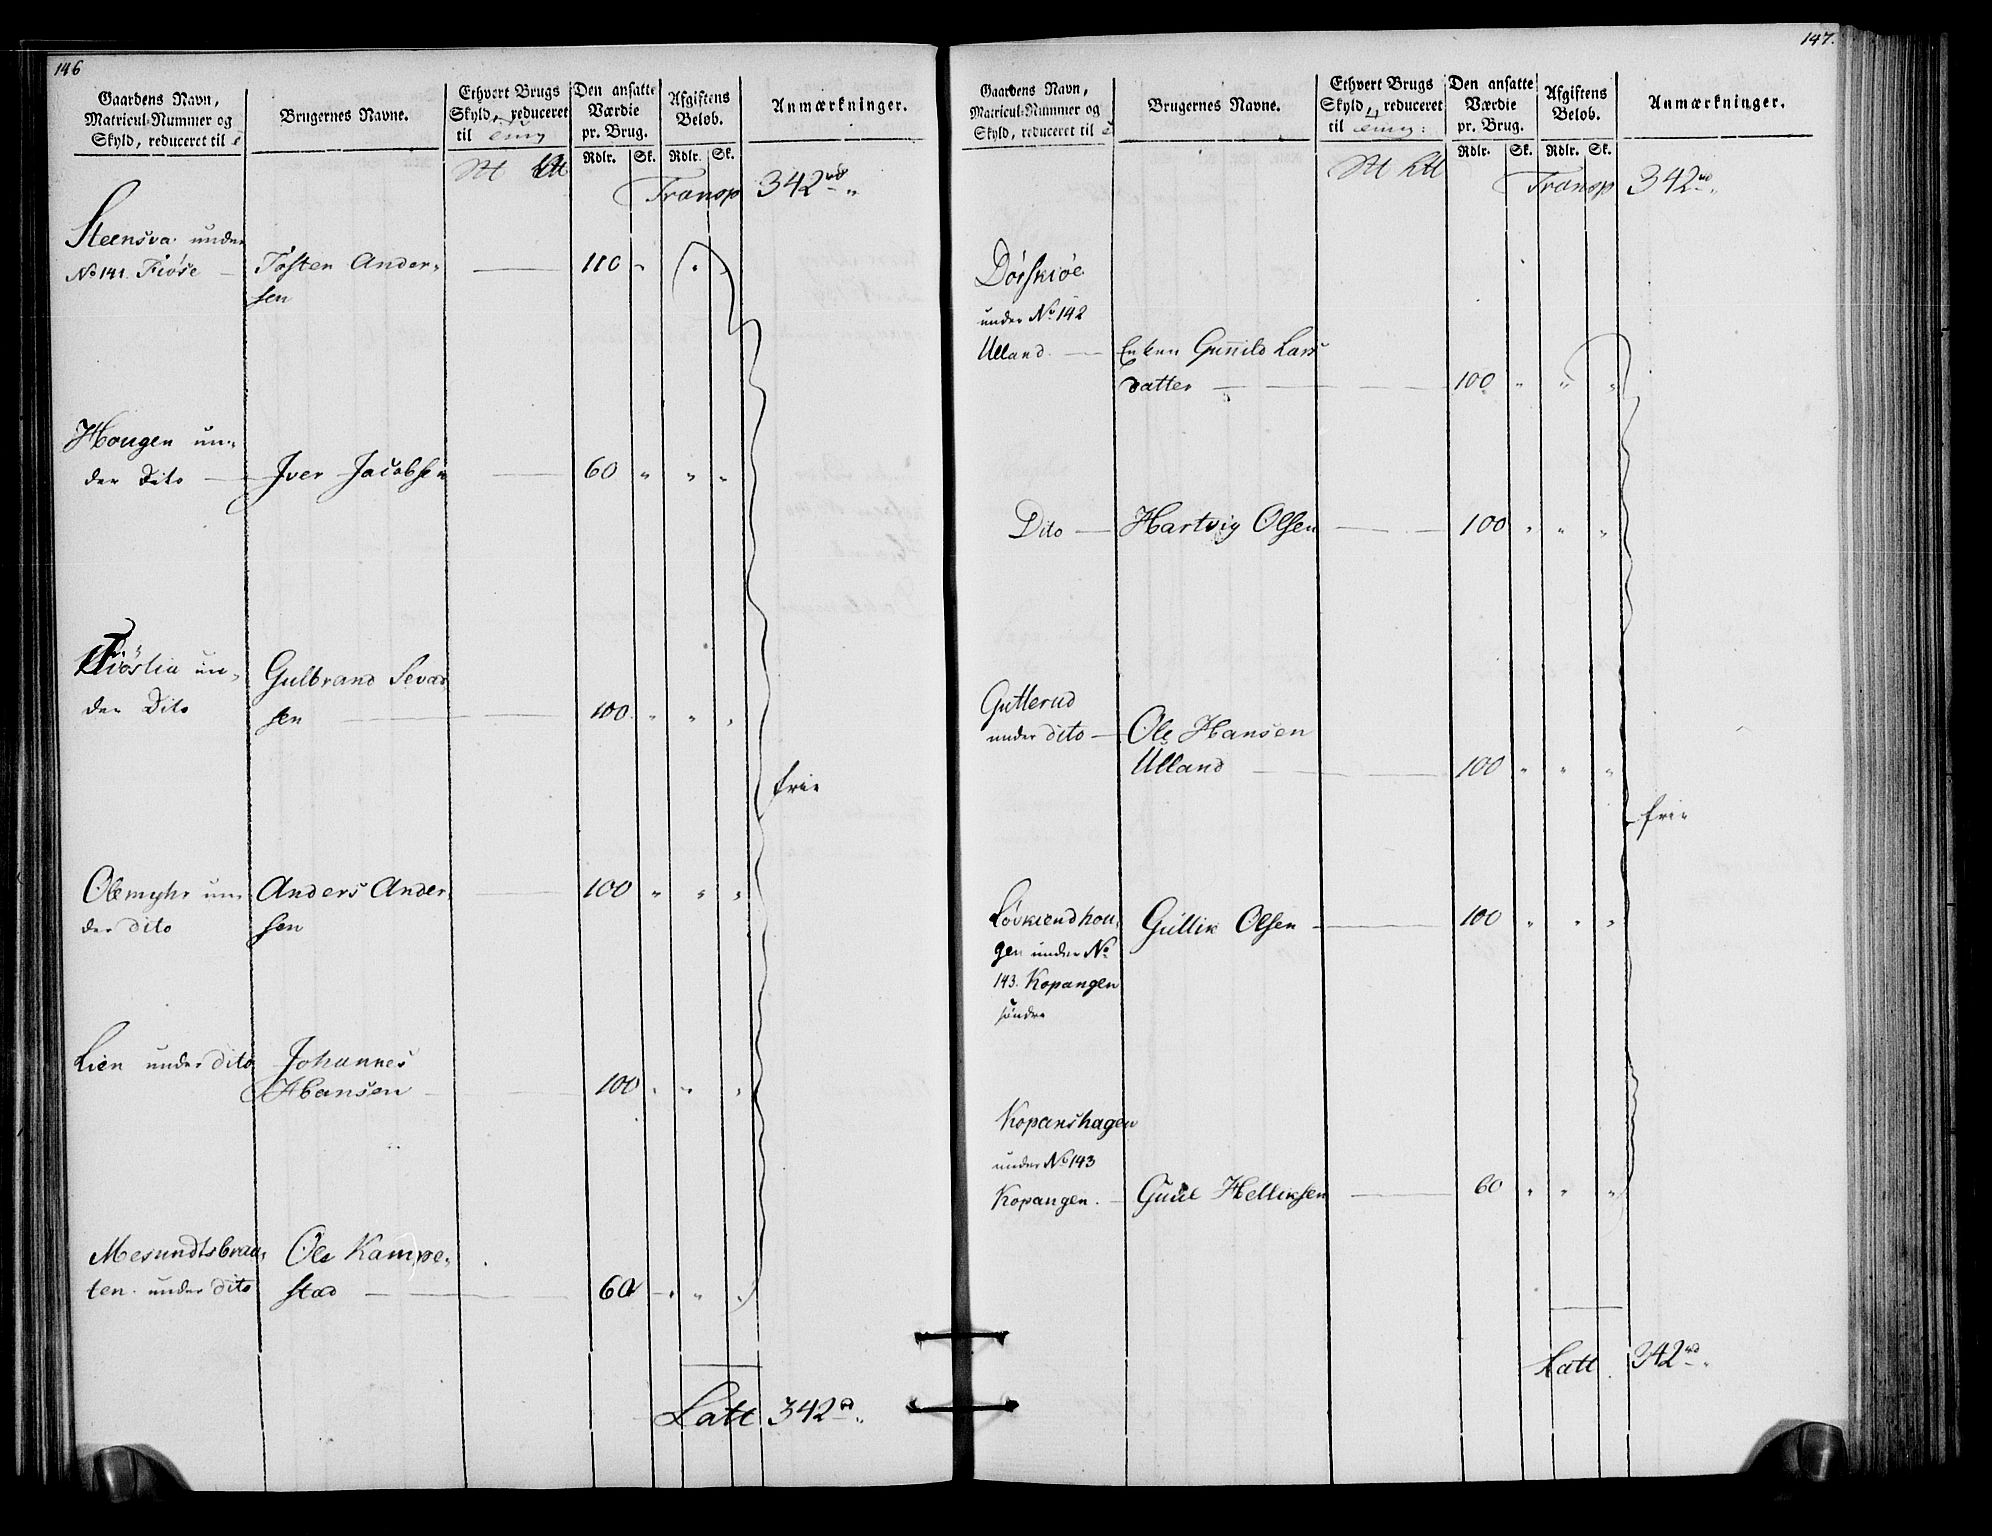 146
Gaardens Navn,
Matricul-Nummer og
Skyld, reduceret til
Brugernes Navne.
Ethvert Brugs
Skyld, reduceret
til
Den ansatte
Værdie
pr. Brug.
Rdlr. Sk.
Afgiftens
Beløb.
Rdlr. Sk.
Anmærkninger.
Transp 342 rd "
Steensva under
No 141. Fiøse — Tosten Ander-
sen — 110 " " "
Hougen un-
der Dito — Iver Jacobsen — 60 " " "
Fiøslia un-
der Dito Gulbrand Sevad
sen — 100 " " "
frie
Olemyhr un-
der dito Anders Ander-
sen — 100 " " "
Lien under dito Johannes
Hansen — 100 " " "
Mesundtsbraa-
ten under dito Ole Kampe-
stad — 60 " " "
Latt 342 rd "
147.
Gaardens Navn,
Matricul-Nummer og
Skyld, reduceret til
Brugernes Navne.
Ethvert Brugs
Skyld, reduceret
til
Den ansatte
Værdie
pr. Brug.
Rdlr. Sk.
Afgiftens
Beløb.
Rdlr. Sk.
Anmærkninger.
Transp 342 rd "
Dørskiøe
under No 142
Ulland. — Enken Gunild Lars
datter — 100 " " "
Dito — Hartvig Olsen — 100 " " "
Gutterud
under dito — Ole Hansen
Ulland — 100 " " "
frie
Løvkiendhou-
gen under No
143. Kopangen
søndre
Gullik Olsen — 100 " " "
Kopanshagen
under No 143
Kopangen. — Guul Helliksen — 60 " " "
Latt 342 rd "